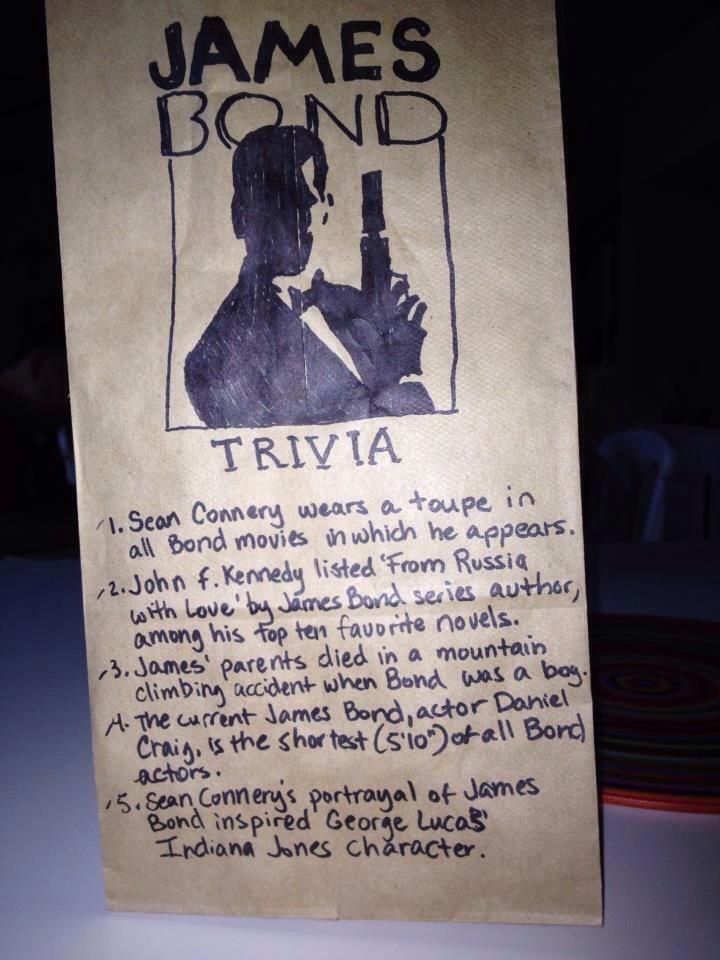 JAMES
BOND
TRIVIA
1. Sean Connery wears a toupe in
all Bond movies in which he appears.
2. John f. Kennedy listed 'From Russia
with Love' by James Bond series author,
among his top ten favorite novels.
3. James' parents died in a mountain
climbing accident when Bond was a boy.
4. The current James Bond, actor Daniel
Craig, is the shortest (5'10") of all Bond
actors.
5. Sean Connery's portrayal of James
Bond inspired George Lucas'
Indiana Jones character.